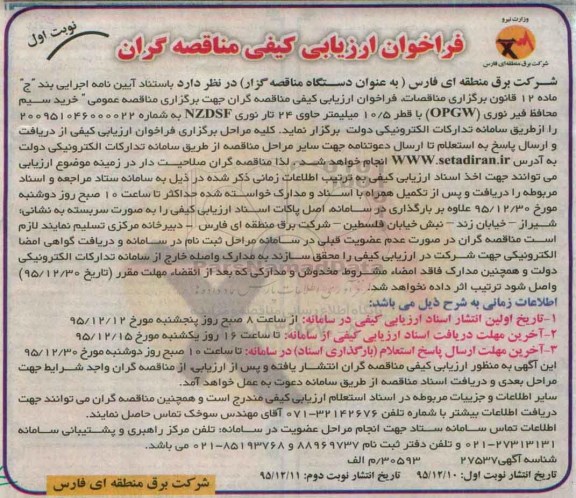 وزارت نیرو
شرکت برق منطقه ای فارس
نوبت اول
فراخوان ارزیابی کیفی مناقصه گران
شرکت برق منطقه ای فارس ( به عنوان دستگاه مناقصه گزار) در نظر دارد باستناد آیین نامه اجرایی بند "ج"
ماده ۱۲ قانون برگزاری مناقصات، فراخوان ارزیابی کیفی مناقصه گران جهت برگزاری مناقصه عمومی " خرید سیم
محافظ فیر نوری (OPGW) با قطر ۱۰/۵ میلیمتر حاوی ۲۴ تار نوری NZDSF به شماره ۲۰۰۹۵۱۰۴۶۰۰۰۰۲۲
را ازطریق سامانه تدارکات الکترونیکی دولت برگزار نماید. کلیه مراحل برگزاری فراخوان ارزیابی کیفی از دریافت
و ارسال پاسخ به استعلام تا ارسال دعوتنامه جهت سایر مراحل مناقصه از طریق سامانه تدارکات الکترونیکی دولت
به آدرس WWW.setadiran.ir انجام خواهد شد. لذا مناقصه گران صلاحیت دار در زمینه موضوع ارزیابی
می توانند جهت اخذ اسناد ارزیابی کیفی به ترتیب اطلاعات زمانی ذکر شده در ذیل به سامانه ستاد مراجعه و اسناد
مربوطه را دریافت و پس از تکمیل همراه با اسناد و مدارک خواسته شده حداکثر تا ساعت ۱۰ صبح روز دوشنبه
مورخ ۹۵/۱۲/۳۰ علاوه بر بارگذاری در سامانه، اصل پاکات اسناد ارزیابی کیفی را به صورت سربسته به نشانی:
شیراز – خیابان زند – نبش خیابان فلسطین – شرکت برق منطقه ای فارس – دبیرخانه مرکزی تسلیم نمایند لازم
است مناقصه گران در صورت عدم عضویت قبلی در سامانه مراحل ثبت نام در سامانه و دریافت گواهی امضا
الکترونیکی جهت شرکت در ارزیابی کیفی را محقق سازند به مدارک واصله خارج از سامانه تدارکات الکترونیکی
دولت و همچنین مدارک فاقد امضاء، مشروط، مخدوش و مدارکی که بعد از انقضاء مهلت مقرر (تاریخ ۹۵/۱۲/۳۰)
واصل شود ترتیب اثر داده نخواهد شد.
اطلاعات زمانی به شرح ذیل می باشد:
۱-تاریخ اولین انتشار اسناد ارزیابی کیفی در سامانه: از ساعت ۸ صبح روز پنجشنبه مورخ ۹۵/۱۲/۱۲
۲-آخرین مهلت دریافت اسناد ارزیابی کیفی از سامانه: تا ساعت ۱۶ روز یکشنبه مورخ ۹۵/۱۲/۱۵
۳-آخرین مهلت ارسال پاسخ استعلام (بارگذاری اسناد) در سامانه: تا ساعت ۱۰ صبح روز دوشنبه مورخ ۹۵/۱۲/۳۰
این آگهی به منظور ارزیابی کیفی مناقصه گران انتشار یافته و پس از ارزیابی، از مناقصه گران واجد شرایط جهت
مراحل بعدی و دریافت اسناد مناقصه از طریق سامانه دعوت به عمل خواهد آمد.
سایر اطلاعات و جزییات مربوطه در اسناد استعلام ارزیابی کیفی مندرج است و همچنین مناقصه گران می توانند جهت
دریافت اطلاعات بیشتر با شماره تلفن ۳۲۱۴۲۶۷۶-۰۷۱ آقای مهندس سوخک تماس حاصل نمایند.
اطلاعات تماس سامانه ستاد جهت انجام مراحل عضویت در سامانه: تلفن مرکز راهبری و پشتیبانی سامانه
۲۷۳۱۳۱۳۱-۰۲۱ و تلفن دفتر ثبت نام ۸۸۹۶۹۷۳۷ و ۸۵۱۹۳۷۶۸-۰۲۱ می باشد.
شناسه آگهی ۲۷۵۳۷ ۳۰۵۹۳/م الف
تاریخ انتشار نوبت اول: ۹۵/۱۲/۱۰ تاریخ انتشار نوبت دوم: ۹۵/۱۲/۱۱
شرکت برق منطقه ای فارس